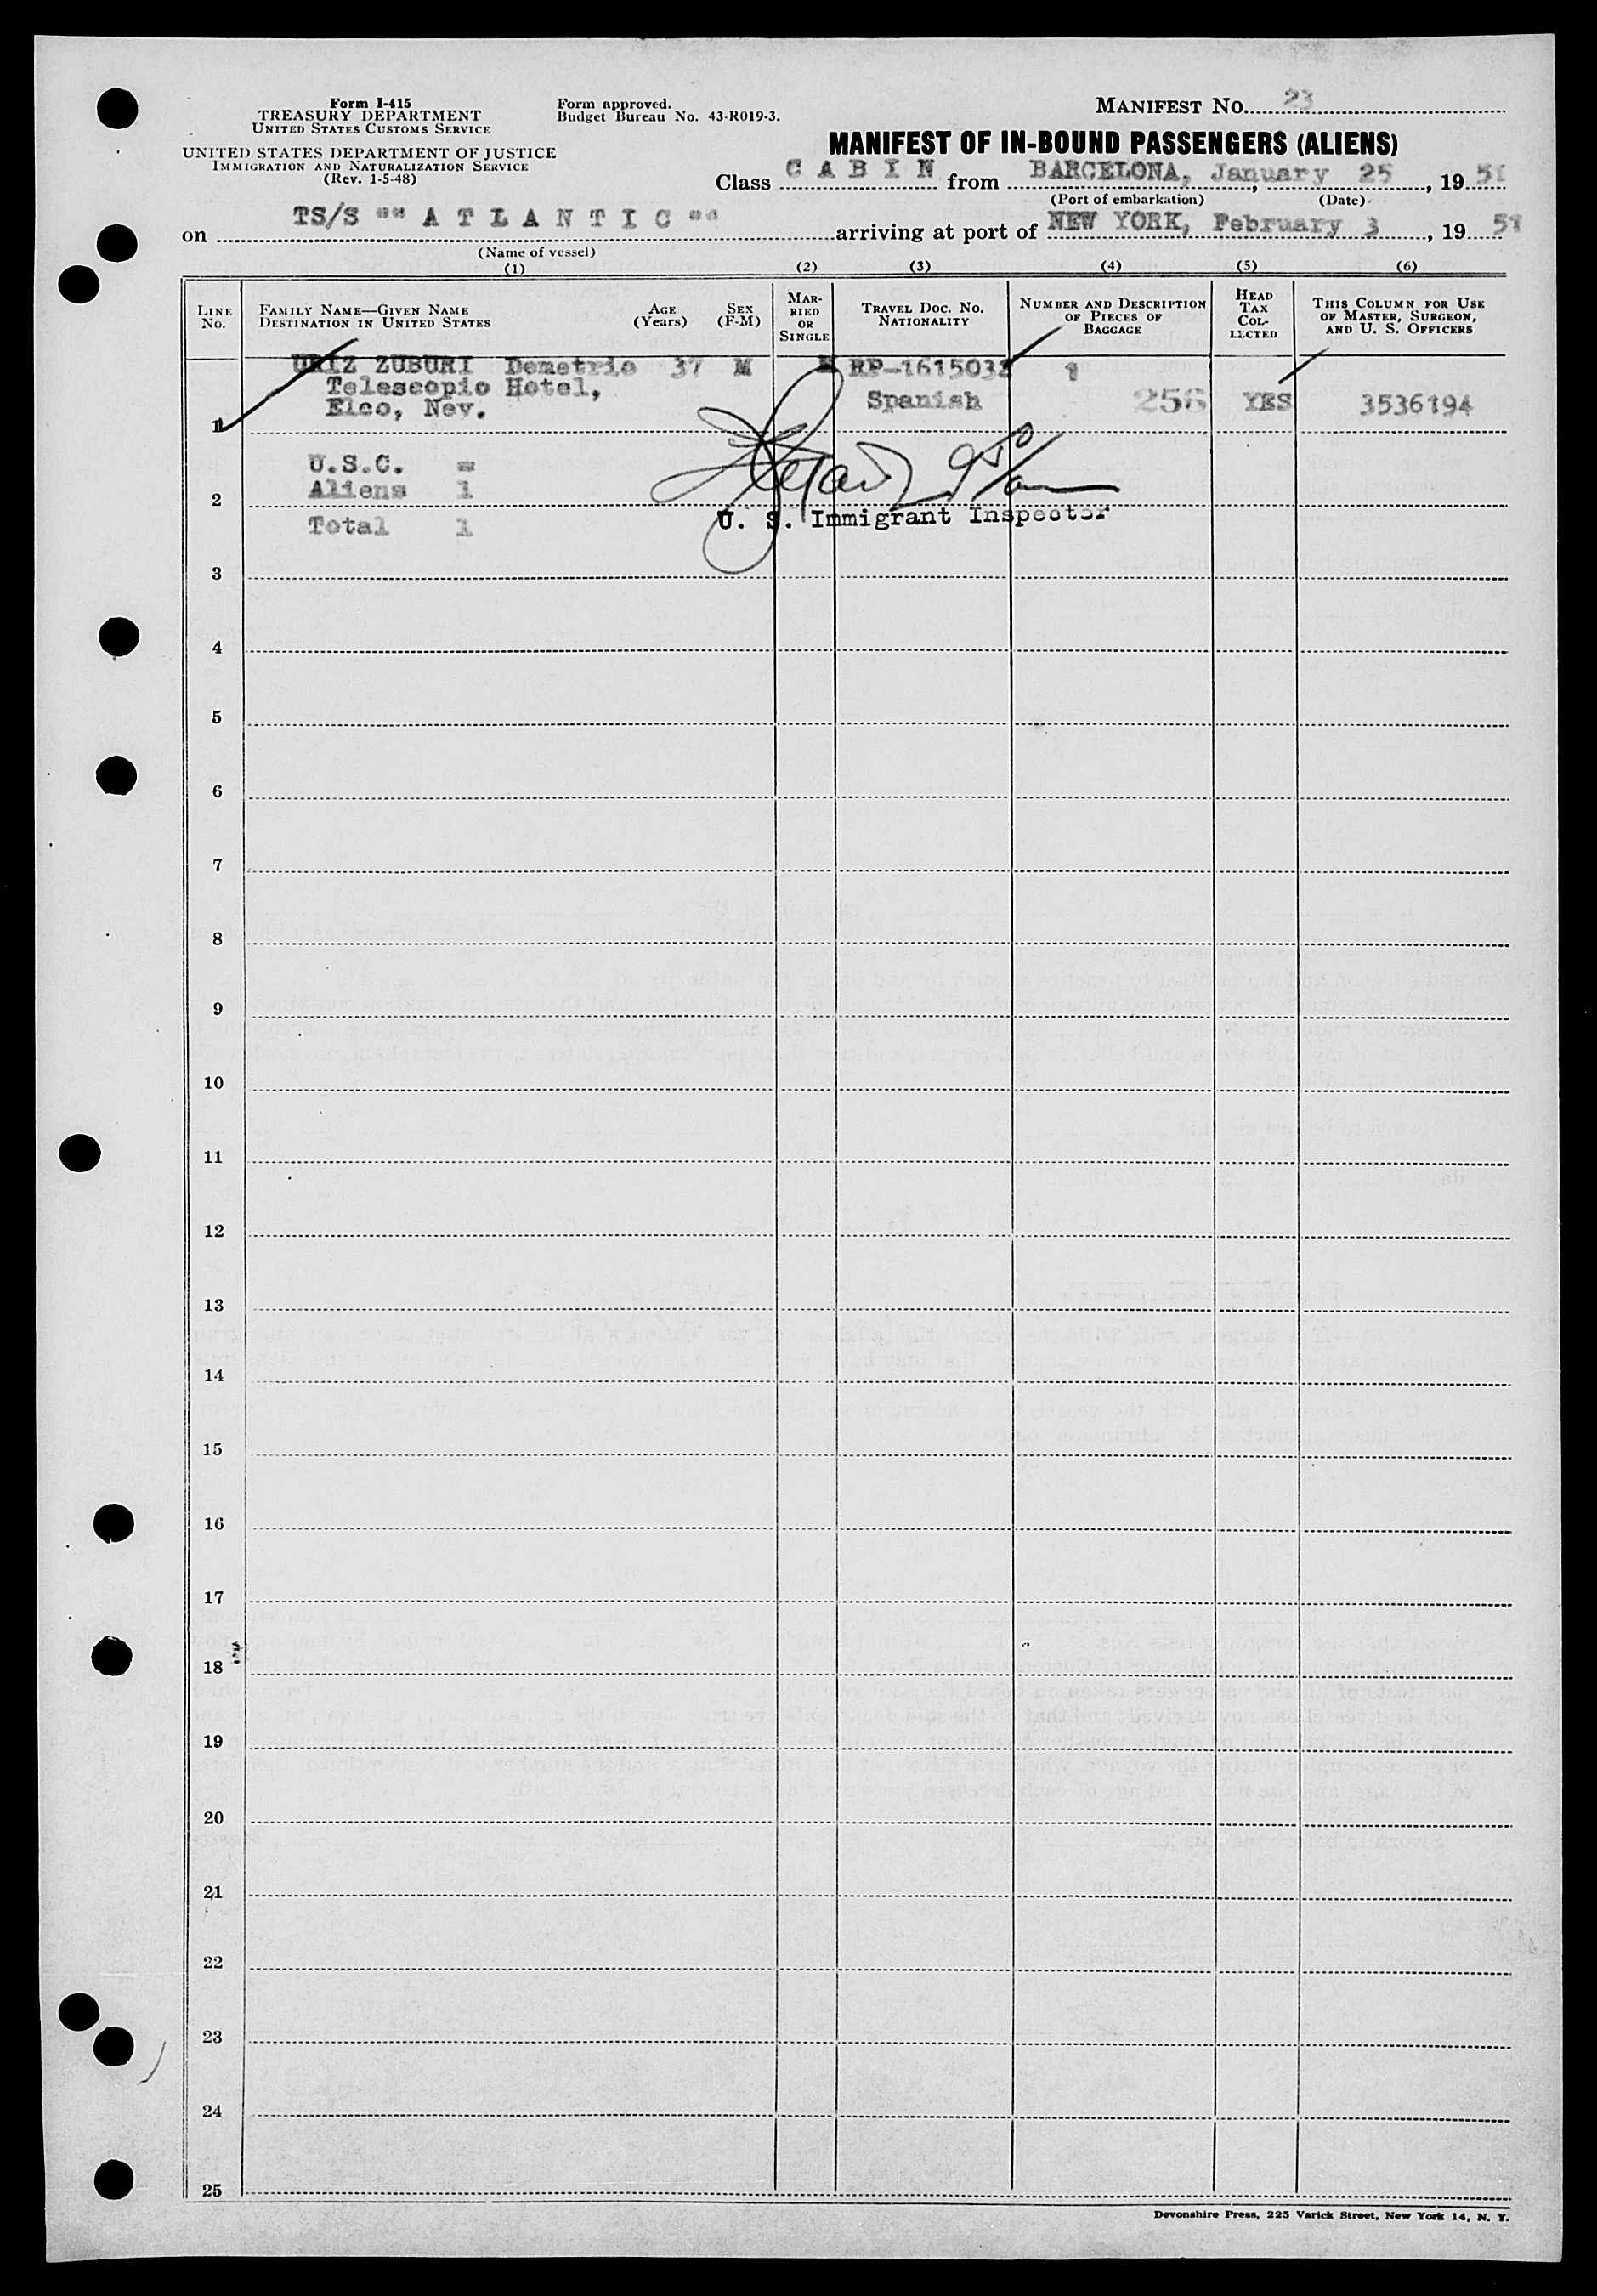 Form I-415
TREASURY DEPARTMENT
UNITED STATES CUSTOMS SERVICE
UNITED STATES DEPARTMENT OF JUSTICE
IMMIGRATION AND NATURALIZATION SERVICE
(Rev. 1-5-48)
Form approved.
Budget Bureau No. 43-R019-3.
MANIFEST No. 23
MANIFEST OF IN-BOUND PASSENGERS (ALIENS)
Class C A B I N from BARCELONA, January 25, 1951
(Port of embarkation) (Date)
on TS/S "" A T L A N T I C "" arriving at port of NEW YORK, February 3, 1951
(Name of vessel)
(1) (2) (3) (4) (5) (6)
LINE No. FAMILY NAME—GIVEN NAME DESTINATION IN UNITED STATES AGE (Years) SEX (F-M) MARRIED OR SINGLE TRAVEL DOC. No. NATIONALITY NUMBER AND DESCRIPTION OF PIECES OF BAGGAGE HEAD TAX COLLECTED THIS COLUMN FOR USE OF MASTER, SURGEON, AND U. S. OFFICERS
URIZ ZUBURI Demetrio 37 M M RP-1615032 1
Telescopio Hotel, Spanish 256 YES 3536194
Elco, Nev.
1
U.S.C. =
Aliens 1
2
U. S. Immigrant Inspector
Total 1
3
4
5
6
7
8
9
10
11
12
13
14
15
16
17
18
19
20
21
22
23
24
25
Devonshire Press, 225 Varick Street, New York 14, N. Y.